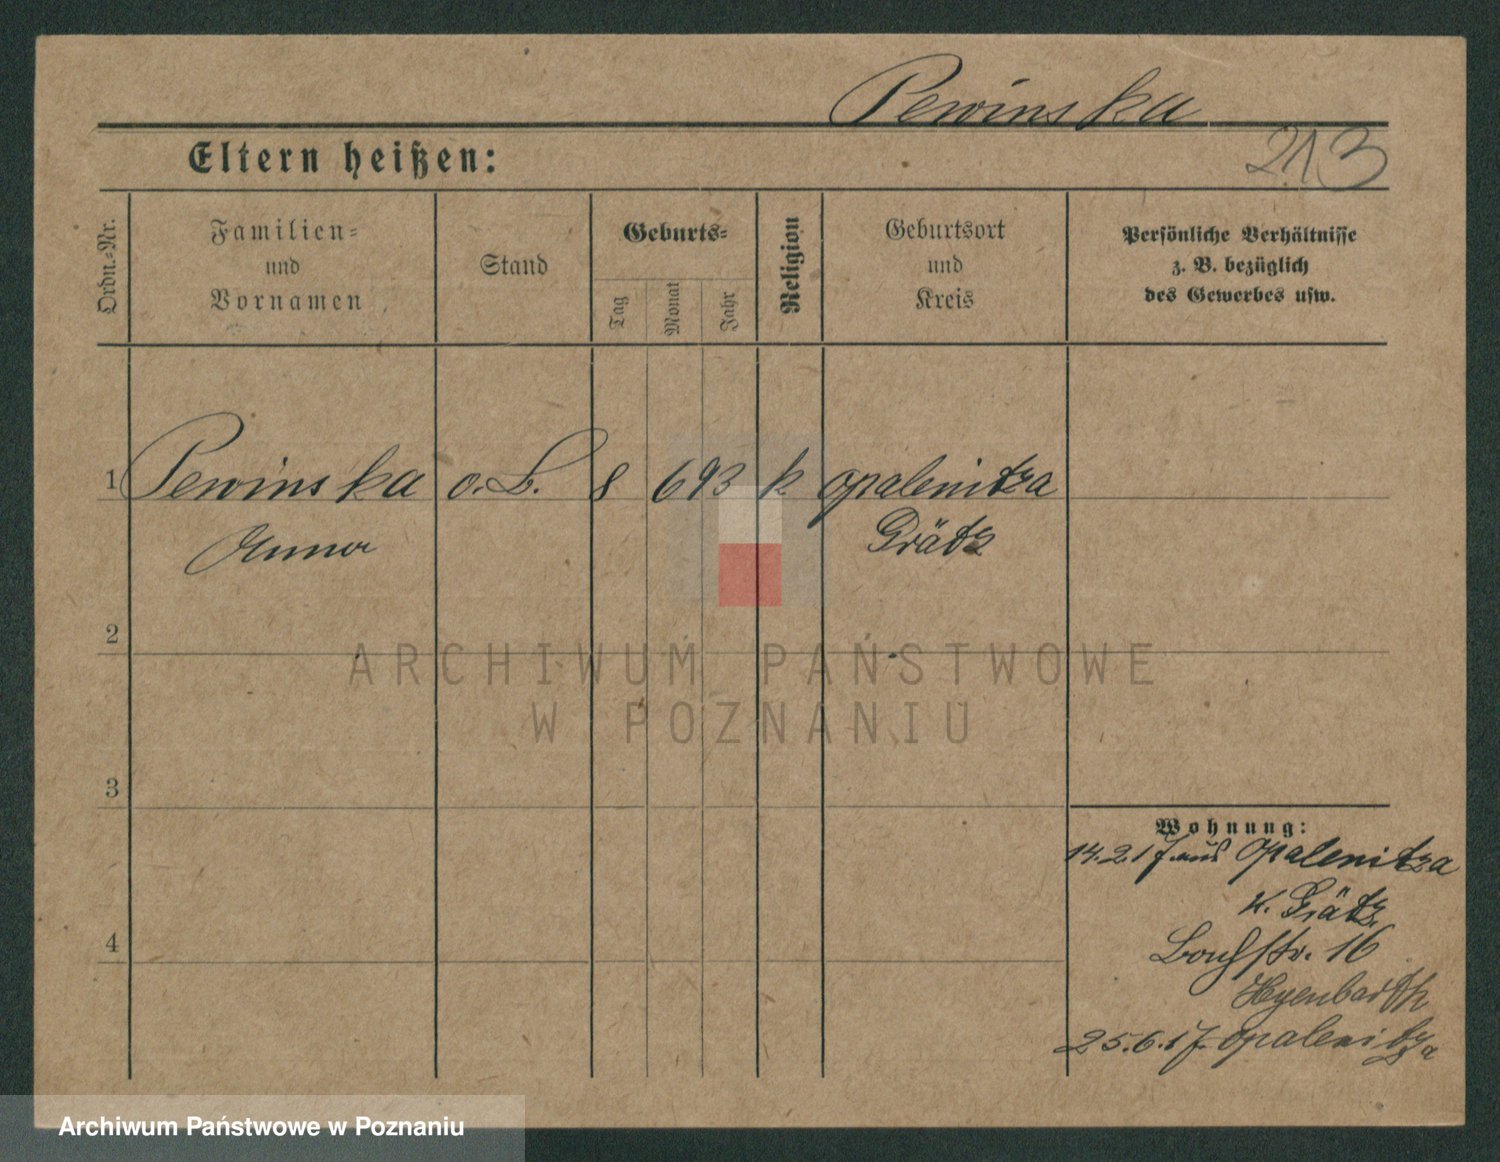 Pewinska
213
Eltern heißen:
Ordn.-Nr.
Familien-
und
Vornamen
Stand
Geburts-
Tag
Monat
Jahr
Religion
Geburtsort
und
Kreis
Persönliche Verhältnisse
z. B. bezüglich
des Gewerbes usw.
1 Pewinska o. B. 8 6 93 k opalenitza
Anna Grätz
2
ARCHIWUM PAŃSTWOWE
W POZNANIU
3
Wohnung:
14.2.17 aus Opalenitza
K. Grätz
Bachstr. 16
4
25.6.17. opalenitza
Archiwum Państwowe w Poznaniu